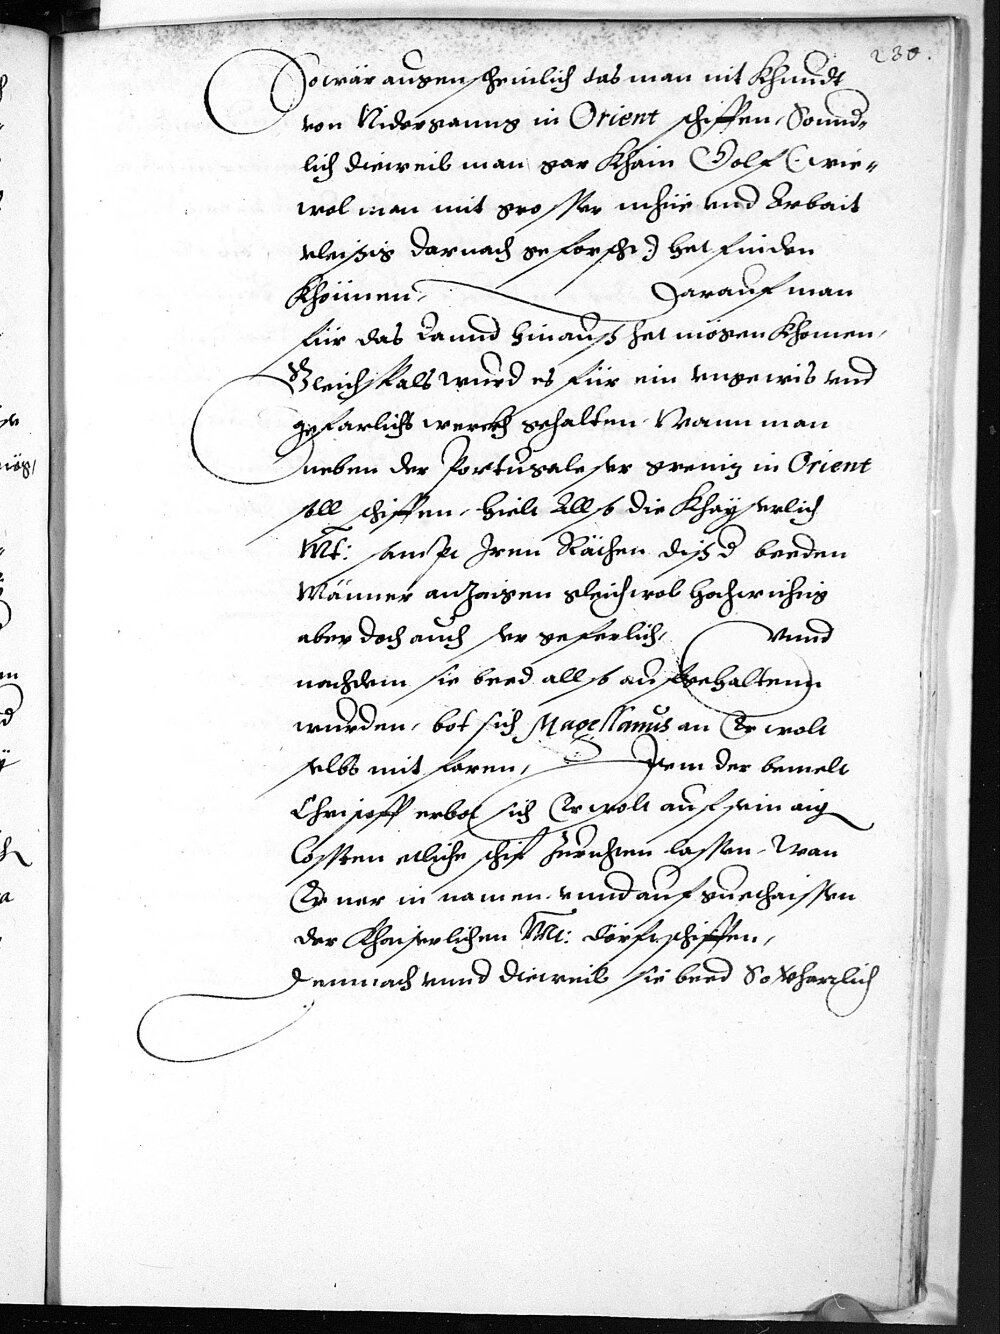 230.
So wär augenscheinlich das man nit khundt
von Niderganng in Orient schiffen, Sonnd-
lich dieweil man gar khain Golf (: wie-
wol man mit grosser mhüe vnd Arbait
vleissig darnach geforscht :) het finden
khönnen, Darauf man
für das Lannd hinauß het mögen khomen,
Gleichsfals wurd es für ein vngewis vnd
gefarlichs werckh gehalten, Wann man
neben der Portugaleser grenitz in Orient
soll schiffen, hielt allso die Khayserlich
Mt: sampt Iren Räthen diser beeden
Männer anzaigen gleichwol hochwichtig
aber doch auch ser geferlich, Vnnd
nachdem sie beed allso aufgehaltenn
wurden, bot sich Magellanus an Er wolt
selbs mit faren, Item der bemelt
Christoff erbot sich Er wolt auf sein aig
Cossten etliche schif zurichten lassen, Wan
Er ner in namen vnnd auf guethaissen
der Khaiserlichen Mt: dörfft schiffen,
Demnach vnnd dieweil sie beed So beharrlich